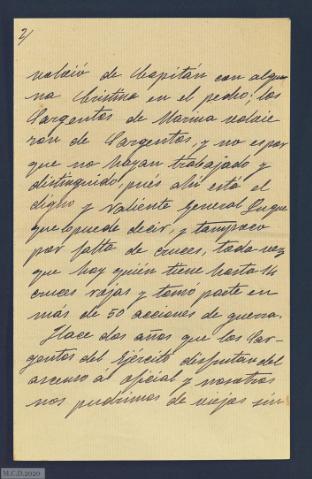 2/
volvió de Capitán con algu-
na Cristina en el pecho; los
Sargentos de Marina volvie
ron de Sargentos, y no es por
que no hayan trabajado y
distinguido, pués ahí está el
digno y valiente General Luque
que lo puede decir, y tampoco
por falta de cruces, toda vez
que hay quién tiene hasta 14
cruces rojas y tomó parte en
más de 50 acciones de guerra.
Hace dos años que los Sar-
gentos del Ejército disfrutan del
ascenso á oficial y nosotros
nos pudrimos de viejos sin
M.C.D.2020